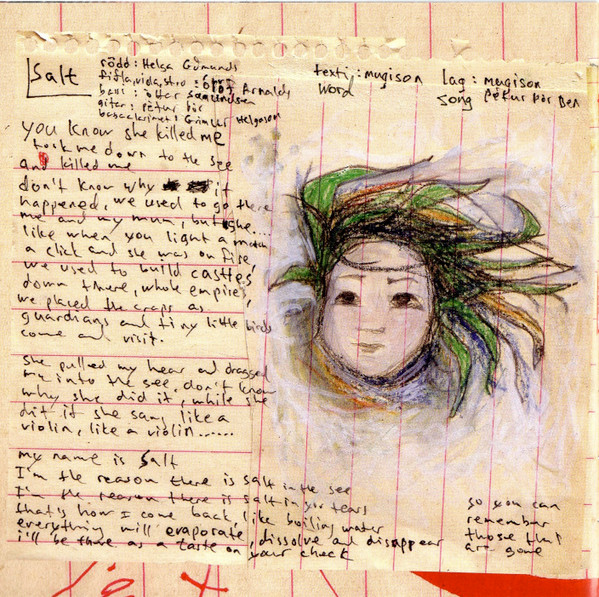 Salt
rödd: Helga Gömundi
fiðla, viola, stro: Ólöf Arnalds
bassi: óttar Sæmundsen
gitar: Pétur Þór
bassaklarinet: Grimur Helgason
textij: mugison
word
lag: mugison
song Pétur Þór Ben
you know she killed me
took me down to the see
and killed me
don't know why it
happened, we used to go there
me and my mum, but she...
like when you light a match
a click and she was on fire,
we used to build casttles
down there, whole empires
we placed the craps as
guardians and tiny little birds
come and visit.
she pulled my hear and dragged
me into the see, don't know
why she did it, while she
dit it she sang like a
violin, like a violin......
my name is Salt
I'm the reason there is salt in the see
I'm the reason there is salt in your tears
that's how I come back, like boiling water
everything will evaporate, dissolve and disappear
i'll be there as a taste on your check
so you can
remember
those that
are gone